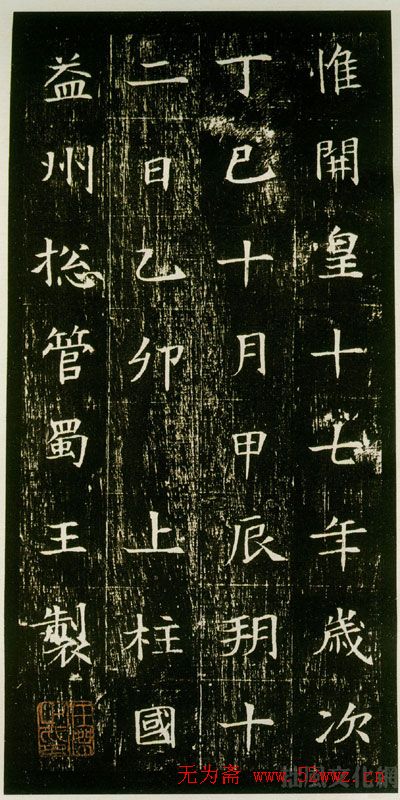 惟開皇十七年歲次
丁巳十月甲辰朔十
二日乙卯 上柱國
益州捴管蜀王製
无为斋 www.52wwz.cn